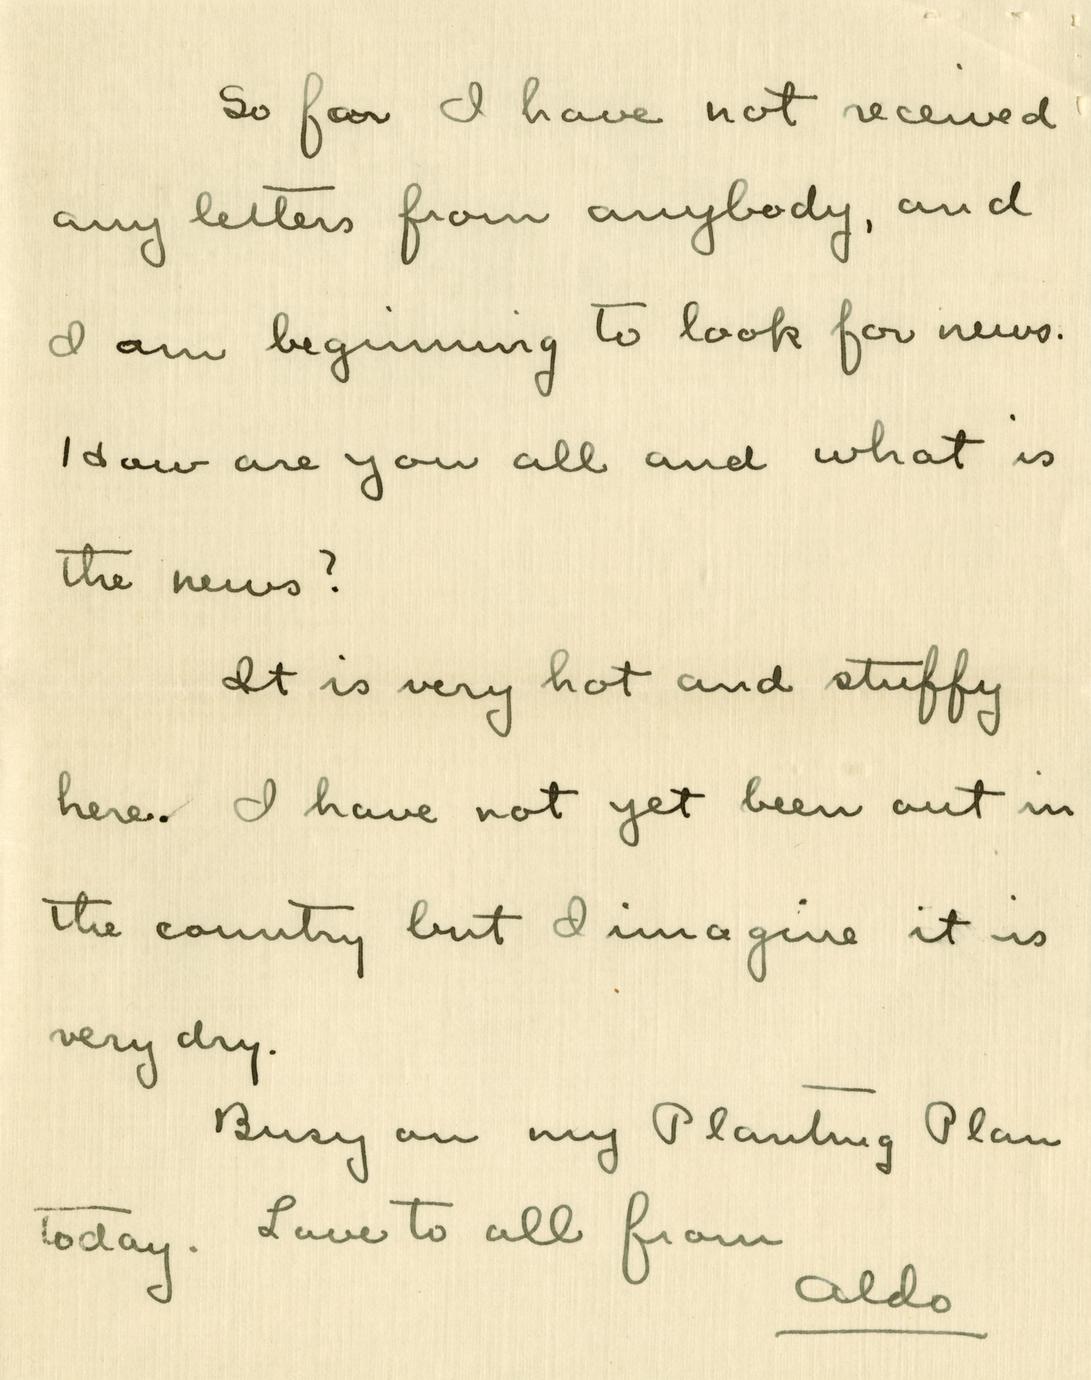 So far I have not received
any letters from anybody, and
I am beginning to look for news.
How are you all and what is
the news?
It is very hot and stuffy
here. I have not yet been out in
the country but I imagine it is
very dry.
Busy on my Planting Plan
today. Love to all from
Aldo